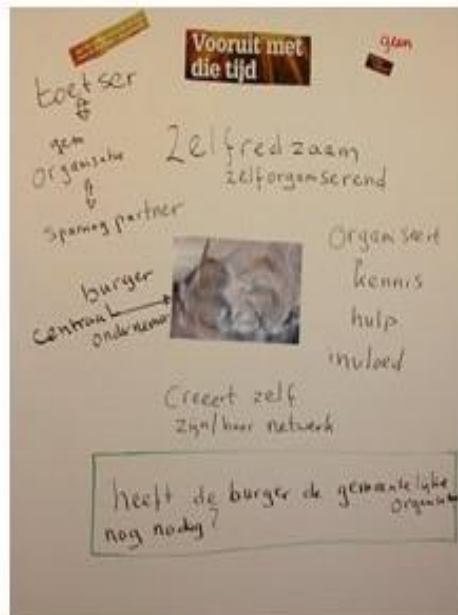 Vooruit met
die tijd
geen
toetser
gem
organisatie
sparring partner
Zelfredzaam
zelforganiserend
burger
centraal
ondernemer
organiseert
kennis
hulp
invloed
Creeert zelf
zijn/haar netwerk
heeft de burger de gemeentelijke
organisatie
nog nodig?